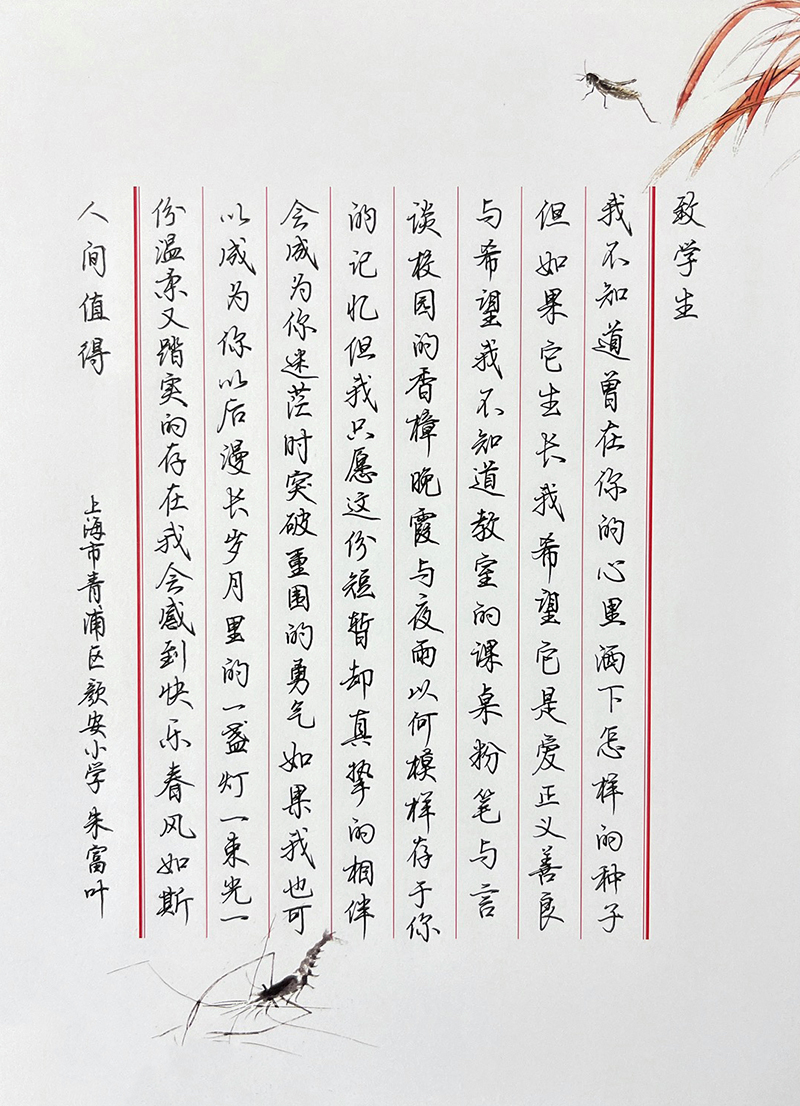 致学生
我不知道曾在你的心里洒下怎样的种子
但如果它生长我希望它是爱正义善良
与希望我不知道教室的课桌粉笔与言
谈校园的香樟晚霞与夜雨以何模样存于你
的记忆但我只愿这份短暂却真挚的相伴
会成为你迷茫时突破重围的勇气如果我也可
以成为你以后漫长岁月里的一盏灯一束光一
份温柔又踏实的存在我会感到快乐春风如斯
人间值得
上海市青浦区颜安小学 朱富叶